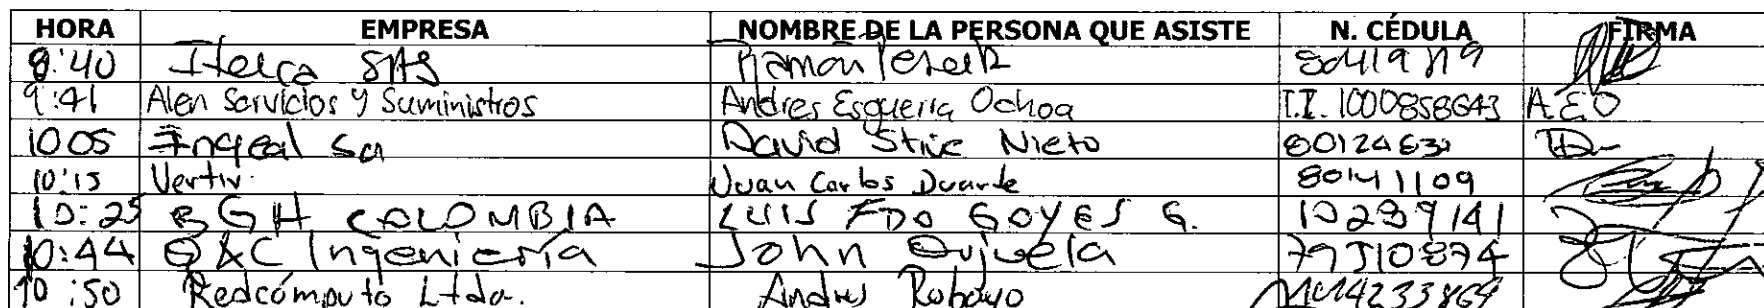 HORA EMPRESA NOMBRE DE LA PERSONA QUE ASISTE N. CÉDULA FIRMA
8:40 Itelca SAS Ramón 80419719
9:41 Alen Servicios y Suministros Andres Esguerra Ochoa T.I. 1000858643 A.E.O
1005 Ingeal sa David Nieto
10:15 Vertiv. Juan Carlos Duarte 80141109
10:25 BGH COLOMBIA LUIS FDO GOYES G. 10289141
10:44 Q&C Ingeniería John 79510874
10:50 Redcómputo Ltda. Andres Robayo 1014233864